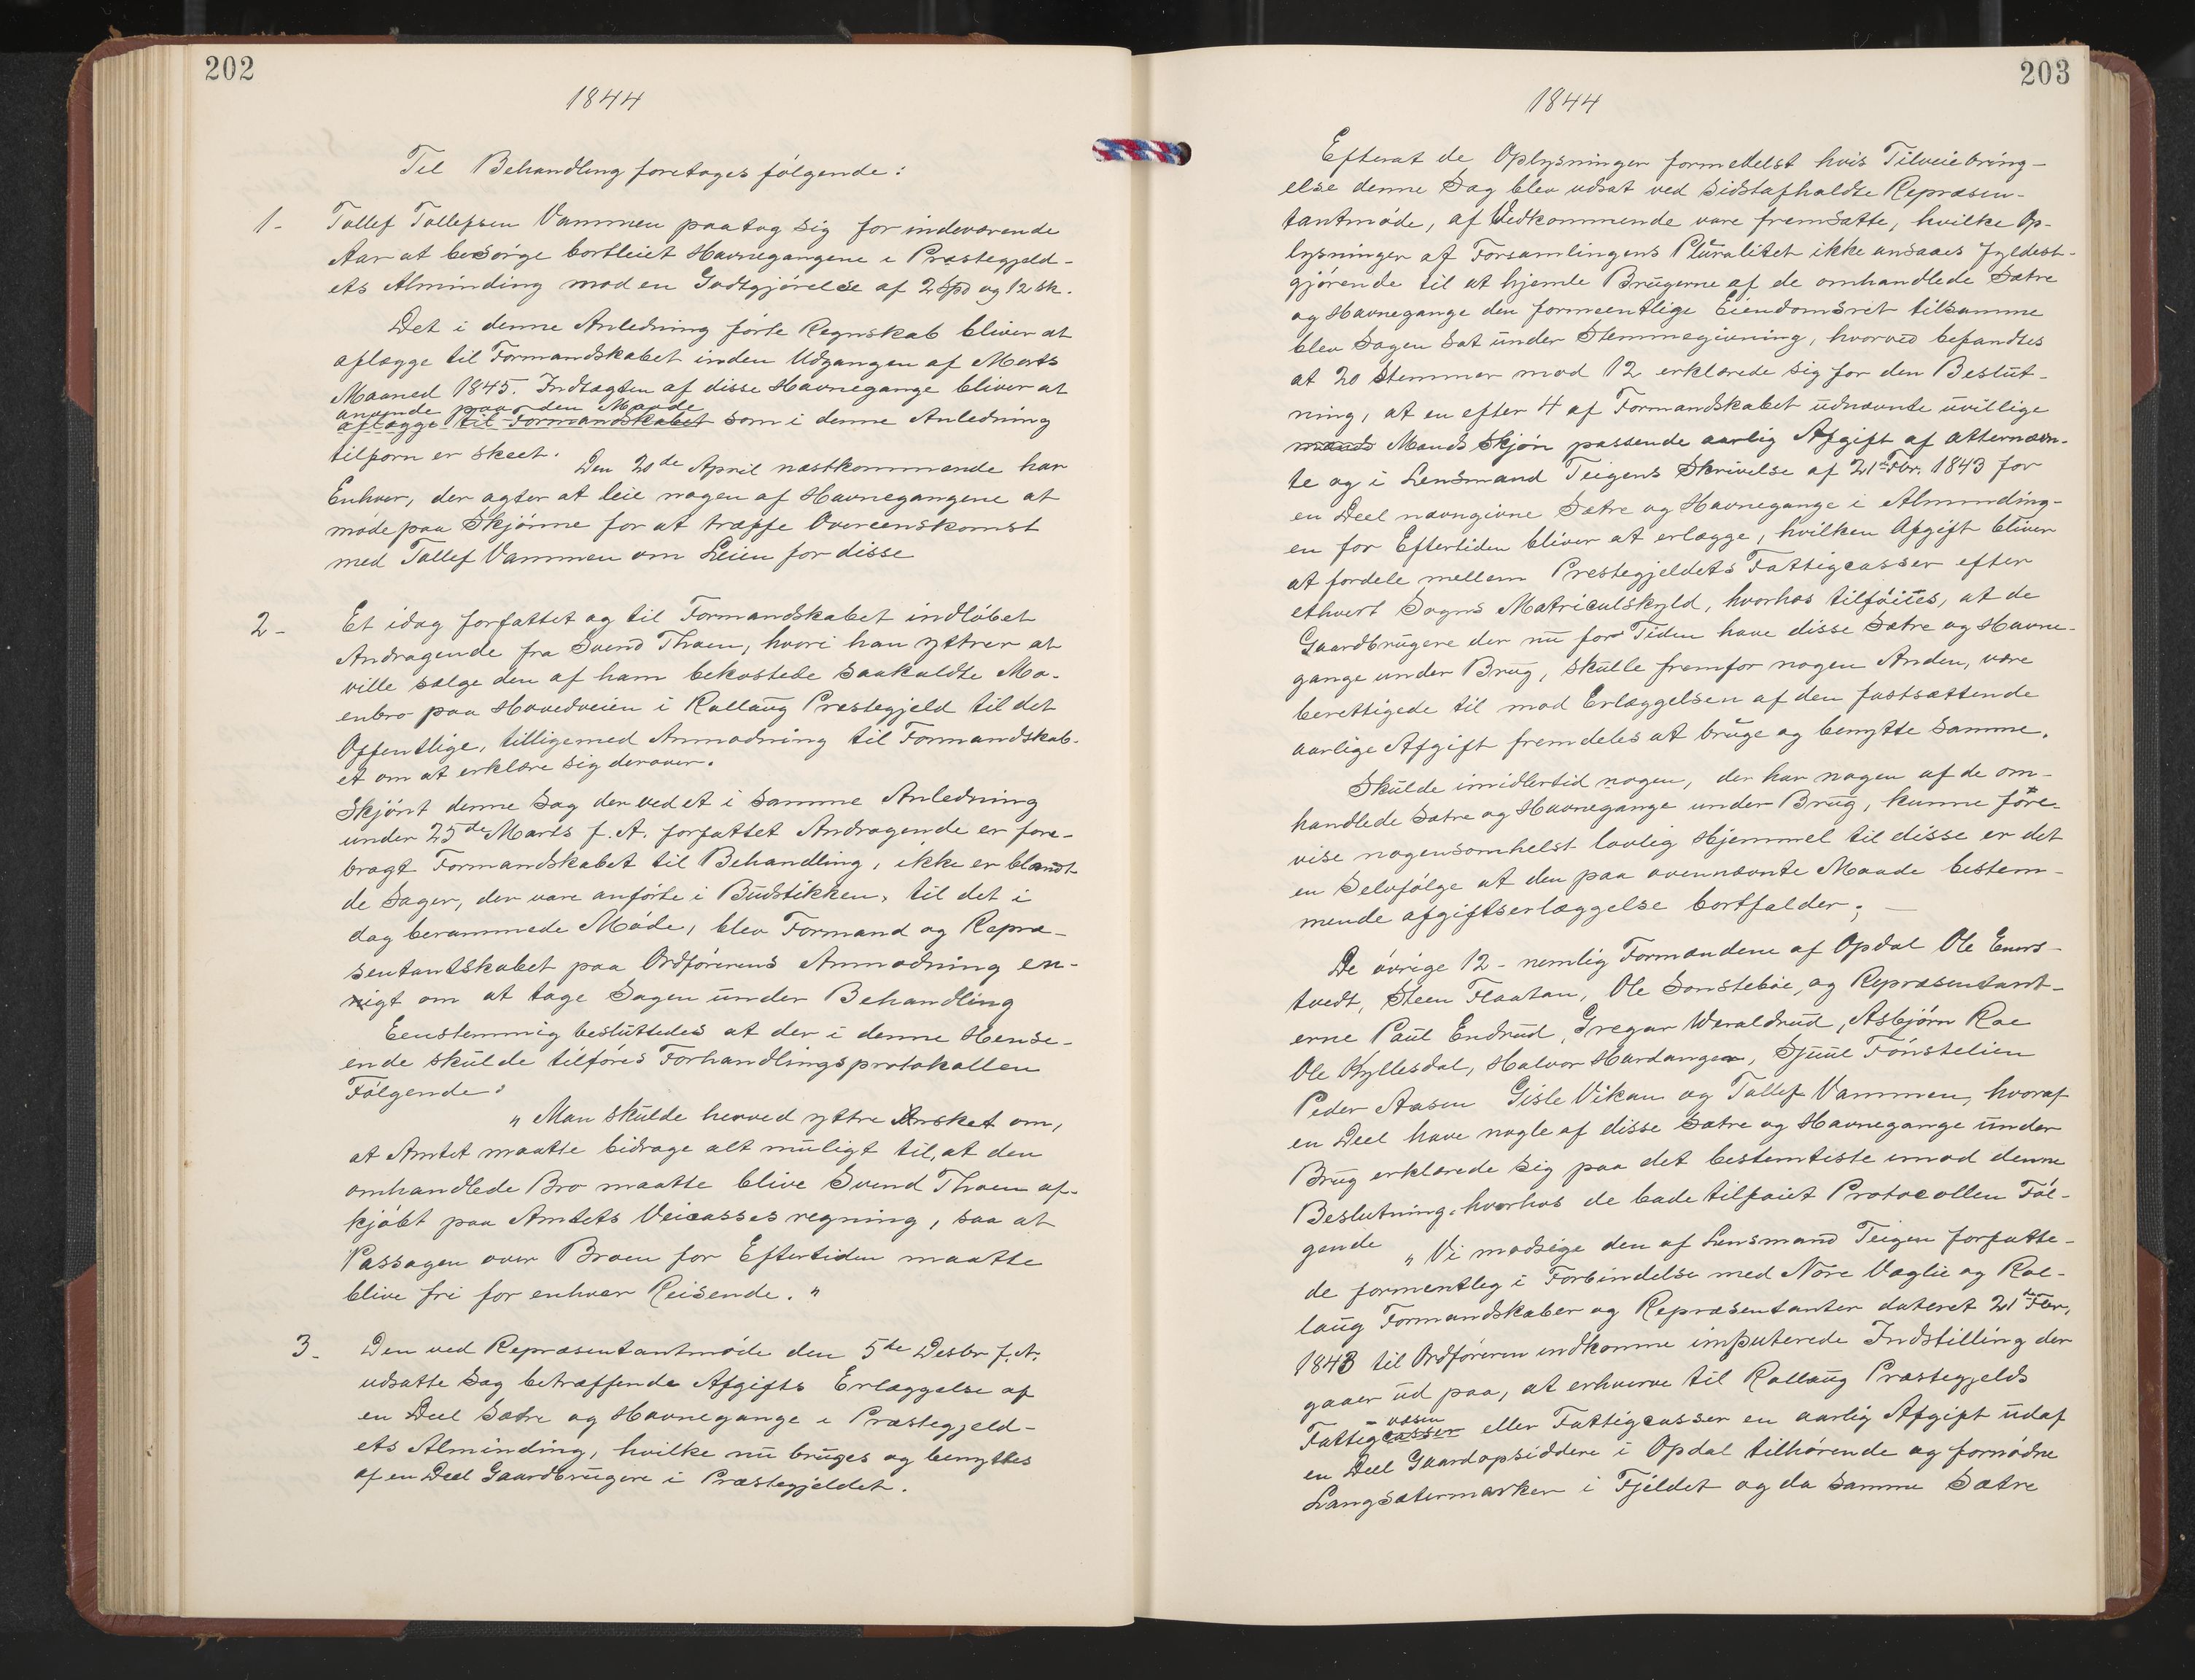 202
1844
Til Behandling foretages følgende:
1- Tollef Tollefsen Vammen paatog sig for indeværende
Aar at besørge bortleiet Havnegangene i Præstegjeld-
ets Alminding mod en Godtgjørelse af 2 Spd og 12 sk.
Det i denne Anledning førte Regnskab bliver at
aflægge til Formandskabet inden Udgangen af Marts
Maaned 1845. Indtægten af disse Havnegange bliver at
anvende paa den Maade
aflægge til Formandskabet som i denne Anledning
tilforn er skeet.
Den 20de April næstkommende har
Enhver, der agter at leie nogen af Havnegangene at
møde paa Skjønne for at træffe Overeenskomst
med Tollef Vammen om Leien for disse
2- Et idag forfattet og til Formandskabet indløbet
Andragende fra Svend Thoen, hvori han yttrer at
ville sælge den af ham bekostede saakaldte Mo-
enbro paa Hovedveien i Rollaug Præstegjeld til det
Offentlige, tilligemed Anmodning til Formandskab-
et om at erklære sig derover.
Skjønt denne Sag der ved et i samme Anledning
under 25de Marts f. A. forfattet Andragende er fore-
bragt Formandskabet til Behandling, ikke er blandt
de Sager, der vare anførte i Budstikken, til det i
dag berammede Møde, blev Formand og Repræ-
sentantskabet paa Ordførerens Anmodning en-
nigt om at tage Sagen under Behandling
Eenstemmig besluttedes at der i denne Hense-
ende skulde tilføres Forhandlingsprotokollen
Følgende:
" Man skulde herved yttre Ønsket om,
at Amtet maatte bidrage alt muligt til, at den
omhandlede Bro maatte blive Svend Thoen af-
kjøbt paa Amtets Veicasses regning, saa at
Passagen over Broen for Eftertiden maatte
blive fri for enhver Reisende. "
3- Den ved Repræsentantmøde den 5te Desbr f. A.
udsatte Sag betræffende Afgifts Erlæggelse af
en Deel Sætre og Havnegange i Præstegjeld-
ets Alminding, hvilke nu bruges og benyttes
af en Deel Gaardbrugere i Præstegjeldet.
203
1844
Efterat de Oplysninger formedelst hvis Tilveiebring-
else denne Sag blev udsat ved sidstafholdte Repræsen-
tantmøde, af Vedkommende vare fremsatte, hvilke Op-
lysninger af Forsamlingens Pluralitet ikke ansaaes fyldest-
gjørende til at hjemle Brugerne af de omhandlede Sætre
og Havnegange den formeentlige Eiendomsret tilsamme
blev Sagen sat under Stemmegivning, hvorved befandtes
at 20 Stemmer mod 12 erklærede sig for den Beslut-
ning, at en efter 4 af Formandskabet udnævnte uvillige
mænds Mænds Skjøn passende aarlig Afgift af atternævn-
te og i Lensmand Teigens Skrivelse af 21de Fbr. 1843 for
en Deel navngivne Sætre og Havnegange i Alminding-
en for Eftertiden bliver at erlægge, hvilken Afgift bliver
at fordele mellem Prestegjeldets Fattigcasser efter
ethvert Sogns Matriculskyld, hvorhos tilføies, at de
Gaardbrugere der nu for Tiden have disse Sætre og Havne-
gange under Brug, skulle fremfor nogen Anden, være
berettigede til mod Erlæggelsen af den fastsættende
aarlige Afgift fremdeles at bruge og benytte samme.
Skulde imidlertid nogen, der har nogen af de om-
handlede Sætre og Havnegange under Brug, kunne fore-
vise nogensomhelst lovlig Hjemmel til disse er det
en Selvfølge at den paa ovennævnte Maade bestem-
mende afgiftserlæggelse bortfalder; —
De øvrige 12 - nemlig Formændene af Opdal Ole Eners-
tvedt, Steen Flaatan, Ole Sønstebøe, og Repræsentant-
erne Paul Endrud, Gregar Weraldrud, Asbjørn Roe
Ole Hyllesdal, Halvor Hardanger, Sjuul Fønstelien
Peder Aasen Gisle Vikan og Tollef Vammen, hvoraf
en Deel have nogle af disse Sætre og Havnegange under
Brug erklærede sig paa det bestemtiste imod denne
Beslutning, hvorhos de bade tilføiet Protocollen Føl-
gende " Vi modsige den af Lensmand Teigen forfatte-
de formentlig i Forbindelse med Nore Væglie og Rol-
laug Formandskaber og Repræsentanter dateret 21de Fbr,
1843 til Ordføreren indkomne imputerede Indstilling der
gaaer ud paa, at erhverve til Rollaug Præstegjelds
væsen
Fattigcasser eller Fattigcasser en aarlig Afgift udaf
en Deel Gaardopsiddere i Opdal tilhørende og fornødne
Langsætermarker i Fjeldet og da samme Sætre